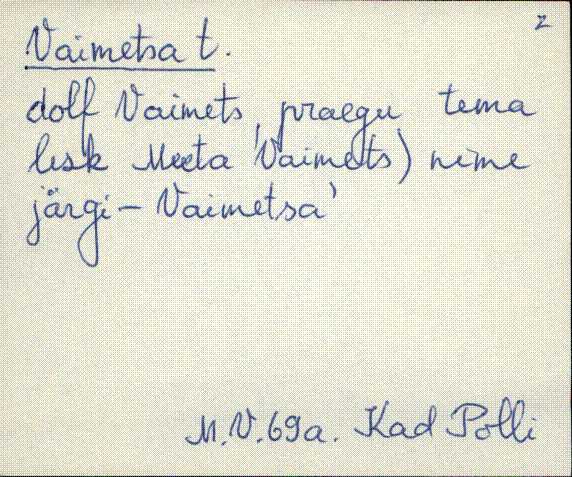 2
Vaimetsa t.
dolf Vaimets, praegu tema
lesk Meeta Vaimets) nime
järgi – Vaimetsa'
M.V. 69a. Kad Polli